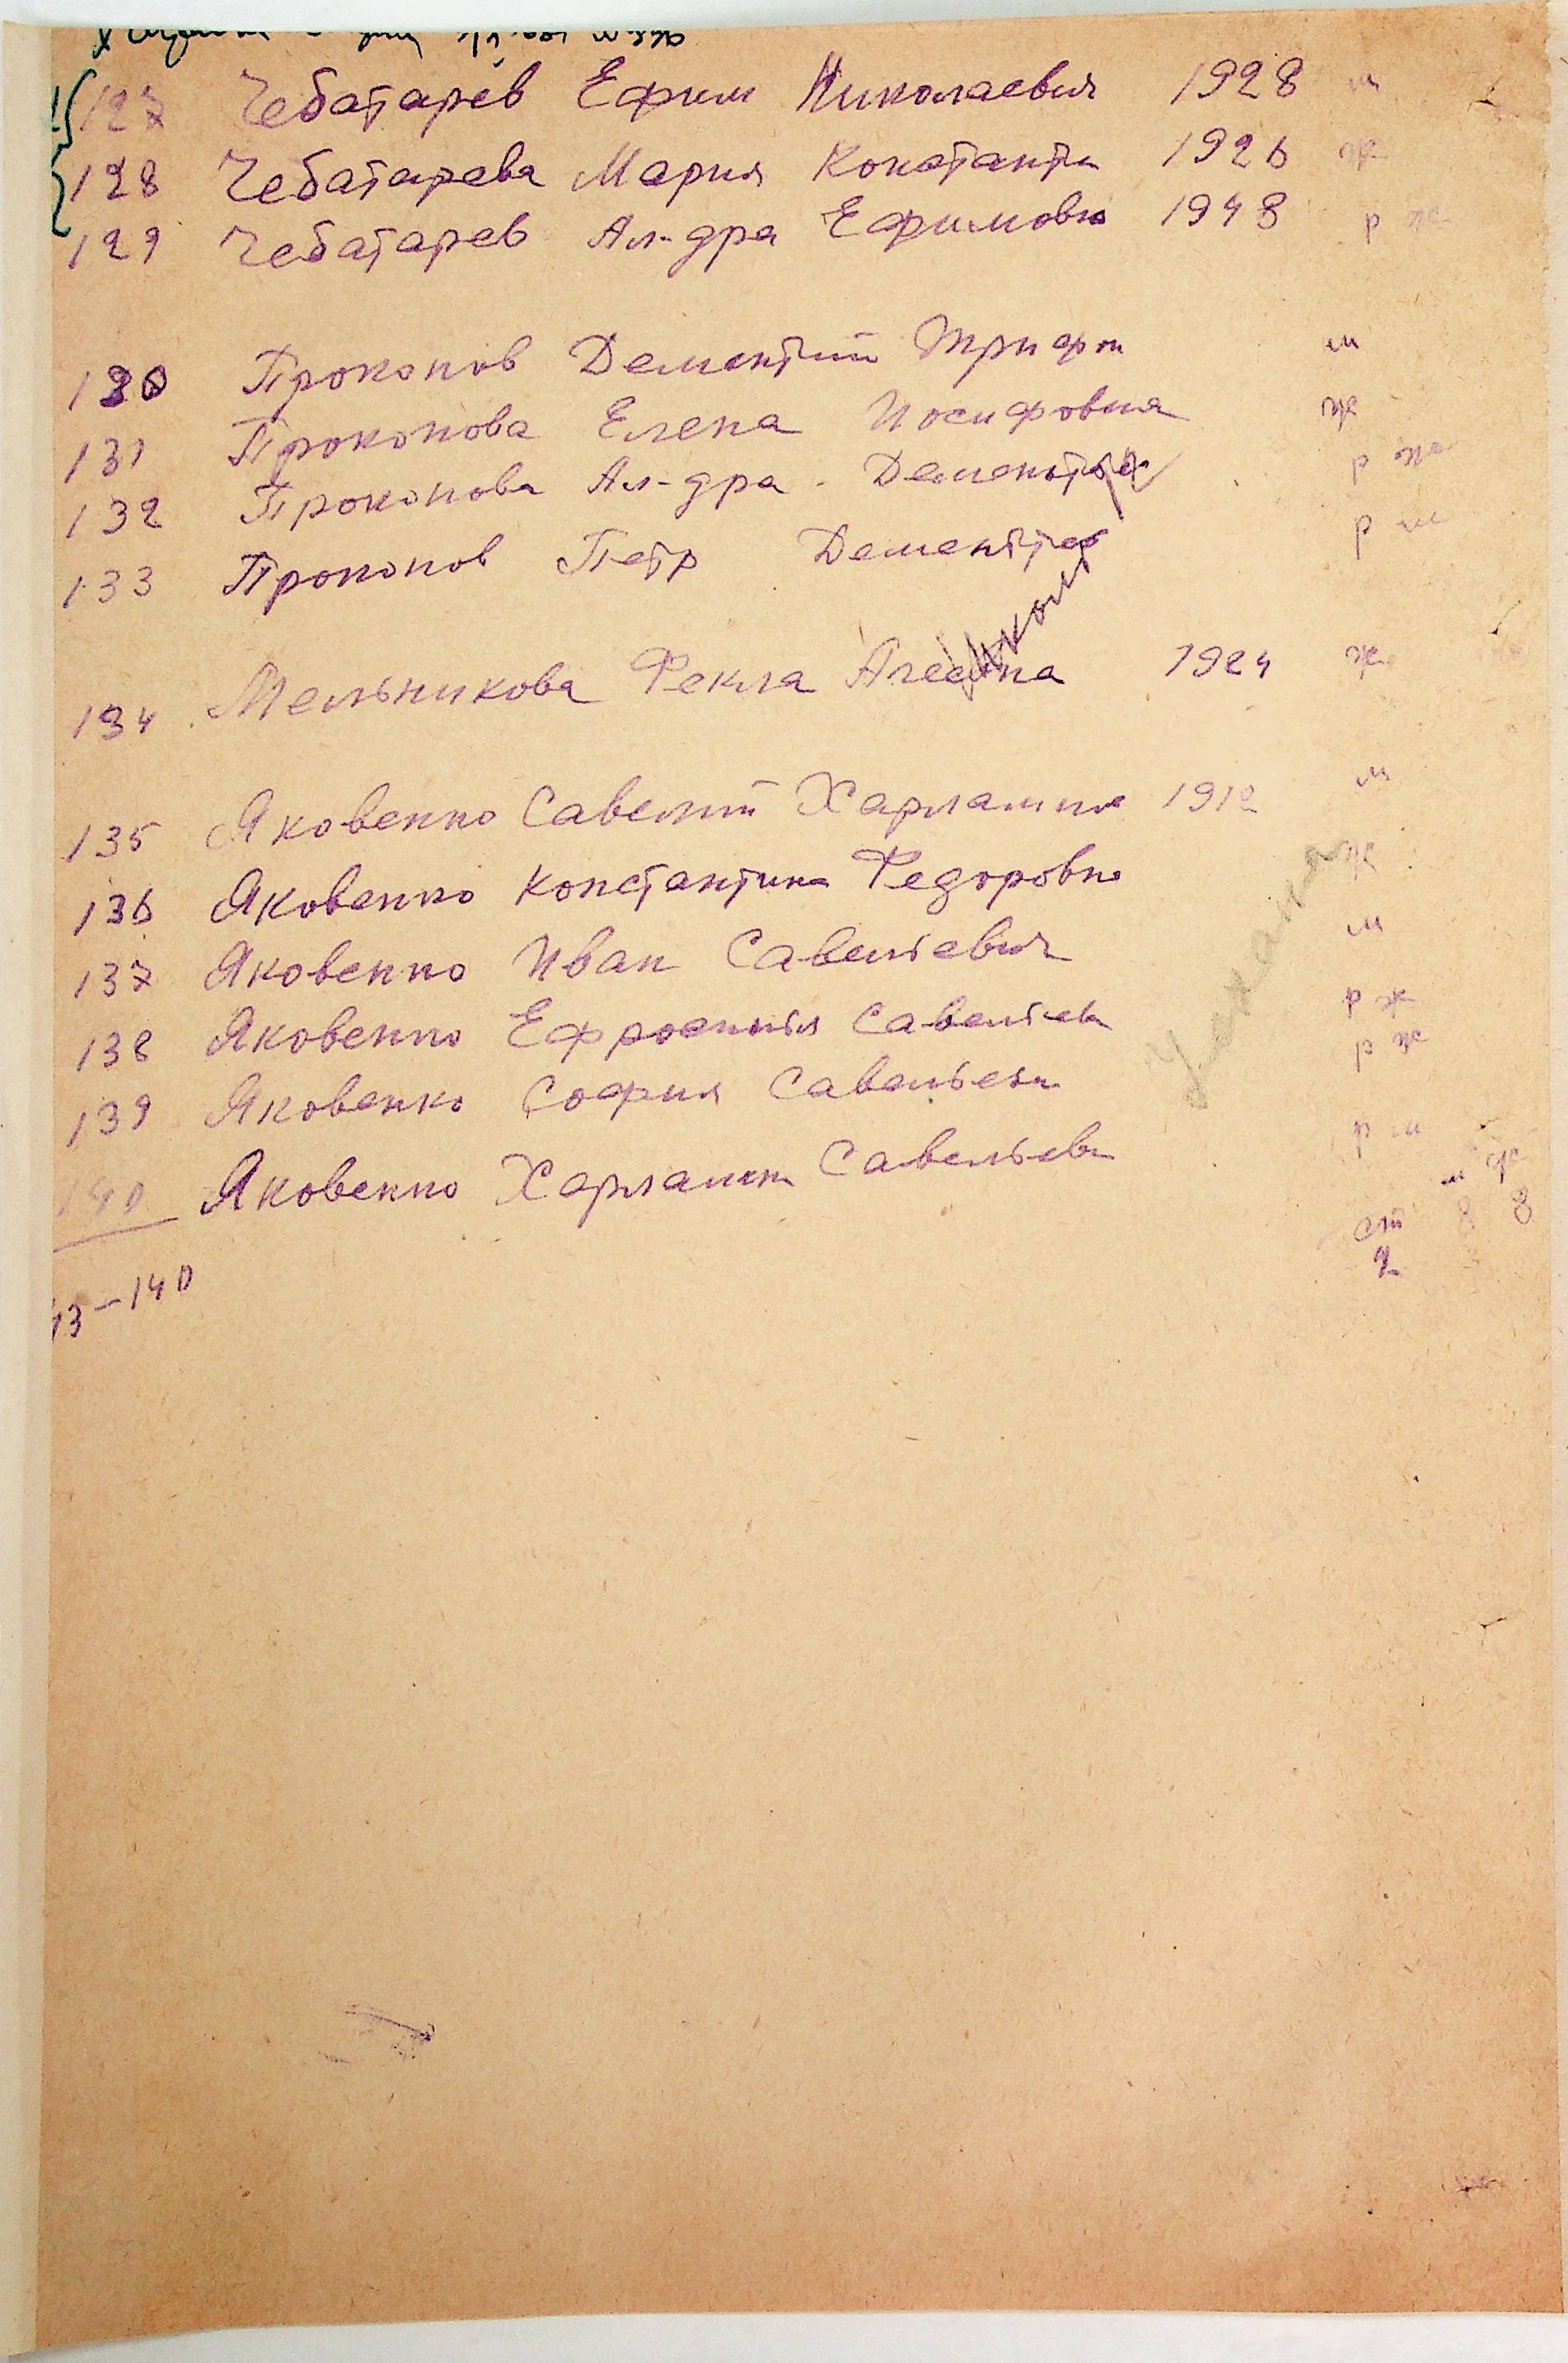 127 Чебатарев Ефим Николаевич 1928 м
128 Чебатарева Мария Константи 1926 ж
129 Чебатарев Ал-дра Ефимовна 1948 р ж
130 Проконов Дементий Трифон м
131 Проконова Елена Иосифовна ж
132 Проконова Ал-дра Дементьев р ж
133 Проконов Петр Дементьев р м
134 Мельникова Фекла 1924 ж
135 Яковенко Савелий Харлампие 1912 м
136 Яковенко Константина Федоровна ж
137 Яковенко Иван Савельевич м
138 Яковенко Ефросинья Савельев р ж
139 Яковенко София Савельевн р ж
140 Яковенко Харламп Савельев р м
м ж
ст 8 8
13-140